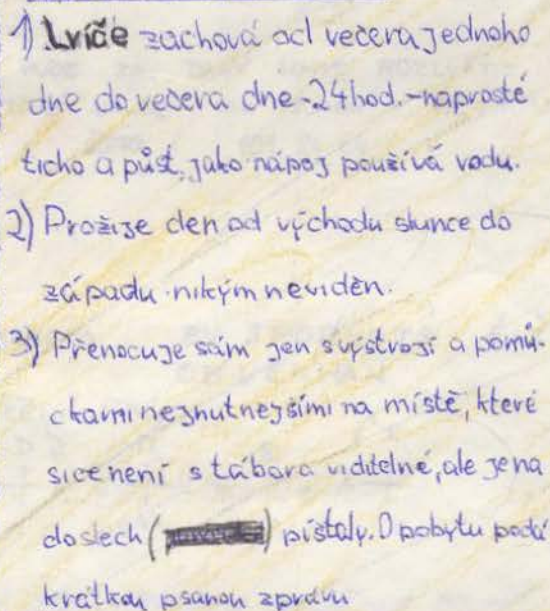 1) Lvíče zachová od večera jednoho
dne do večera dne -24hod.- naprosté
ticho a půst, jako nápoj používá vodu.
2) Prožije den od východu slunce do
západu nikým neviděn.
3) Přenocuje sám jen s výstrojí a pomů-
ckami nejnutnejšími na místě, které
sice není s tábora viditelné, ale je na
doslech () píštaly. O pobytu podá
krátkou psanou zprávu